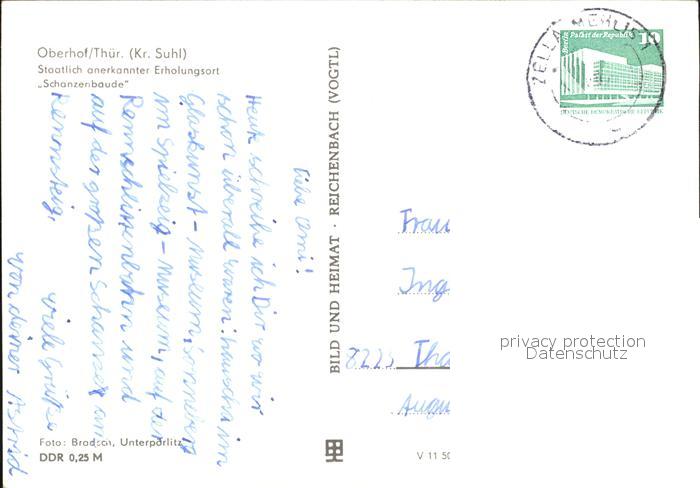 Oberhof/Thür. (Kr. Suhl)
Staatlich anerkannter Erholungsort
„Schanzenbaude"
Liebe Omi!
Heute schreibe ich Dir wo wir
schon überall waren: Lauscha im
Glaskunst-Museum, Sonneberg
im Spielzeig-Museum, auf der
Rennschlittenbahn und
auf der großen Schanze am
Rennsteig.
Viele Grüße
von deiner Astrid
Foto: Brodsch, Unterpörlitz
DDR 0,25 M
BILD UND HEIMAT · REICHENBACH (VOGTL)
V 11 50
ZELLA-MEHLIS 1
Berlin Palast der Republik
10
DEUTSCHE DEMOKRATISCHE REPUBLIK
Frau
Ing
8225 Tha
Augu
privacy protection
Datenschutz